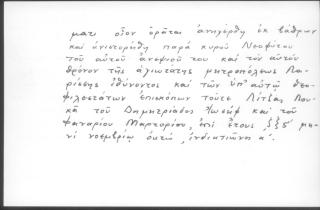 ματι οἷον ὁρᾶται ἀνηγέρθη ἐκ βάθρων
καὶ ἀνιστορήθη παρὰ κυροῦ Νεοφύτου
τοῦ αὐτοῦ ἀνεψιοῦ του καὶ τὸν αὐτὸν
θρόνον τῆς ἁγιωτάτης μητροπόλεως Λα-
ρίσσης ἰθύνοντος καὶ τῶν ὑπ' αὐτῷ θεο-
φιλεστάτων ἐπισκόπων τοῦτε Λιτζᾶς Λου-
κᾶ τοῦ Δημητριάδος Ἰωσὴφ καὶ τοῦ
Φαναρίου Μαρτυρίου, ἐπὶ ἔτους μη-
νὶ νοεμβρίῳ ἰνδικτιῶνος α΄.